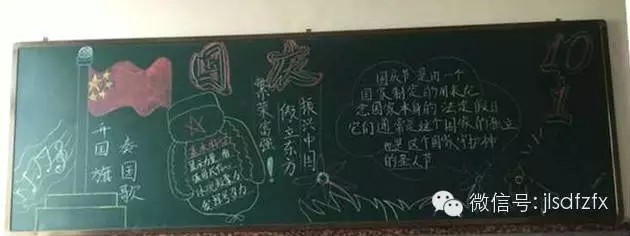 国庆
10
1
奏国歌
升国旗
繁荣富强!
振兴中国
傲立东方
国庆节是由一个
国家制定的用来纪
念国家本身的法定假日
它们通常是这个国家的独立
也是这个国家的护神
的圣人节
微信号: jlsdfzfx